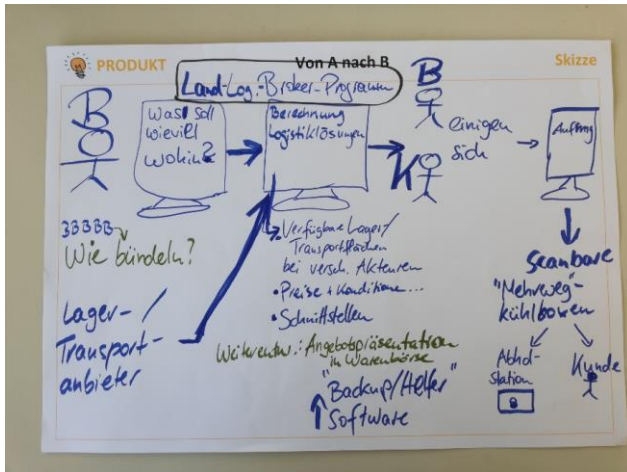 PRODUKT
Von A nach B
Skizze
Land-Log.-Broker-Programm
B
Was soll
wieviel
wohin?
Berechnung
Logistiklösungen
B
K
einigen
sich
Auftrag
BBBBB
Wie bündeln?
Lager-/
Transport-
anbieter
Verfügbare Lager/
Transportflächen
bei versch. Akteuren
• Preise + Konditionen...
• Schnittstellen
Weiterentw.: Angebotspräsentation
in Warenbörse
"Backup/Helfer"
Software
Scanbare
"Mehrweg-
kühlboxen
Abhol-
Station
Kunde